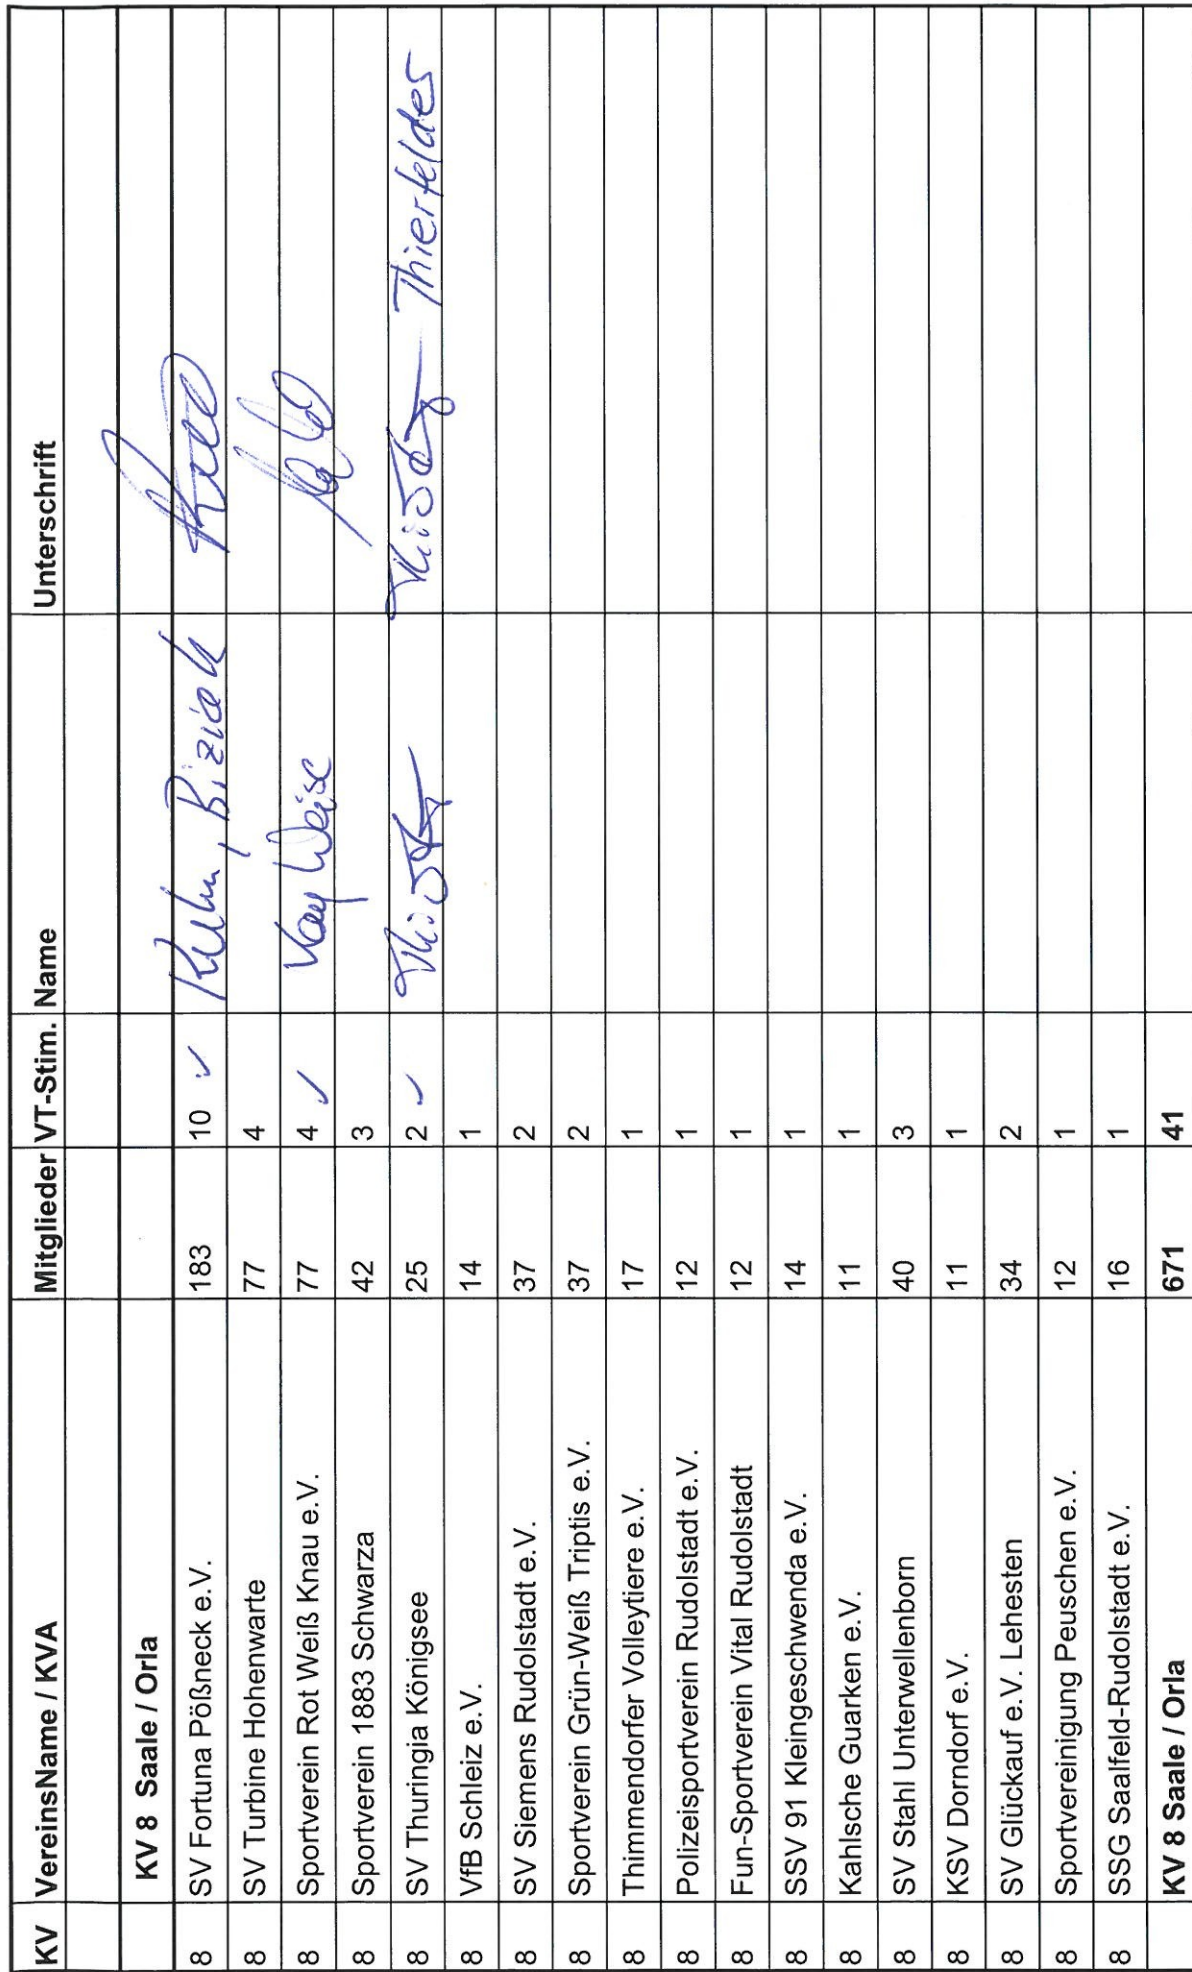 KV VereinsName / KVA Mitglieder VT-Stim. Name Unterschrift
KV 8 Saale / Orla
8 SV Fortuna Pößneck e.V. 183 10 ✓
8 SV Turbine Hohenwarte 77 4
8 Sportverein Rot Weiß Knau e.V. 77 4 ✓ Kay Weise
8 Sportverein 1883 Schwarza 42 3
8 SV Thuringia Königsee 25 2 ✓ Thierfelder
8 VfB Schleiz e.V. 14 1
8 SV Siemens Rudolstadt e.V. 37 2
8 Sportverein Grün-Weiß Triptis e.V. 37 2
8 Thimmendorfer Volleytiere e.V. 17 1
8 Polizeisportverein Rudolstadt e.V. 12 1
8 Fun-Sportverein Vital Rudolstadt 12 1
8 SSV 91 Kleingeschwenda e.V. 14 1
8 Kahlsche Guarken e.V. 11 1
8 SV Stahl Unterwellenborn 40 3
8 KSV Dorndorf e.V. 11 1
8 SV Glückauf e.V. Lehesten 34 2
8 Sportvereinigung Peuschen e.V. 12 1
8 SSG Saalfeld-Rudolstadt e.V. 16 1
KV 8 Saale / Orla 671 41